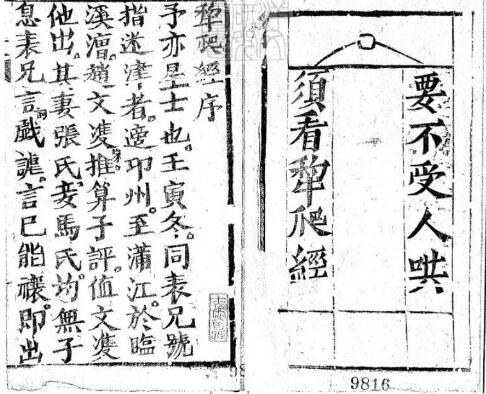 要不受人哄
須看犂爬經
9816
犂爬經序
予亦星士也。壬寅冬。同表兄號
指迷津者。遊邛州。至蒲江。於臨
溪漕。趙文推算子評。值文
他出。其妻張氏。妾馬氏。均無子
息。表兄言戲謔。言已能禳。即出
98